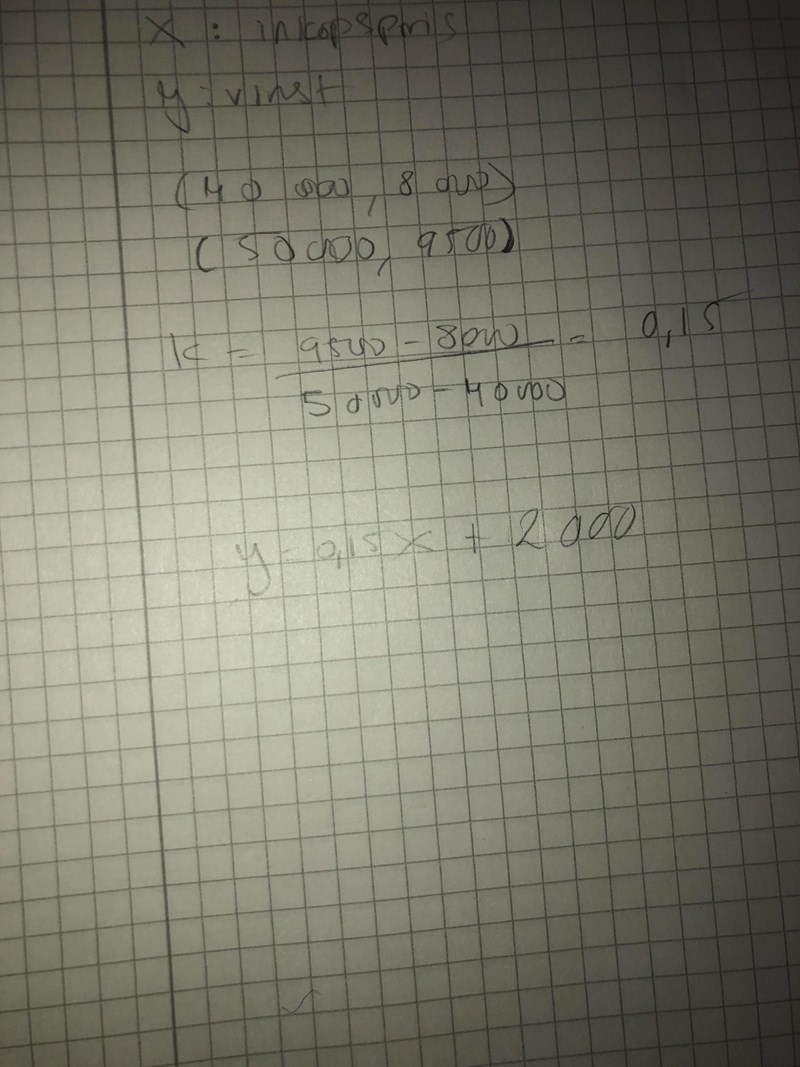 x : inköpspris
y : vinst
(40 000, 8 000)
(50 000, 9500)
k = 9500 - 8000 = 0,15
50000 - 40000
y = 0,15x + 2 000